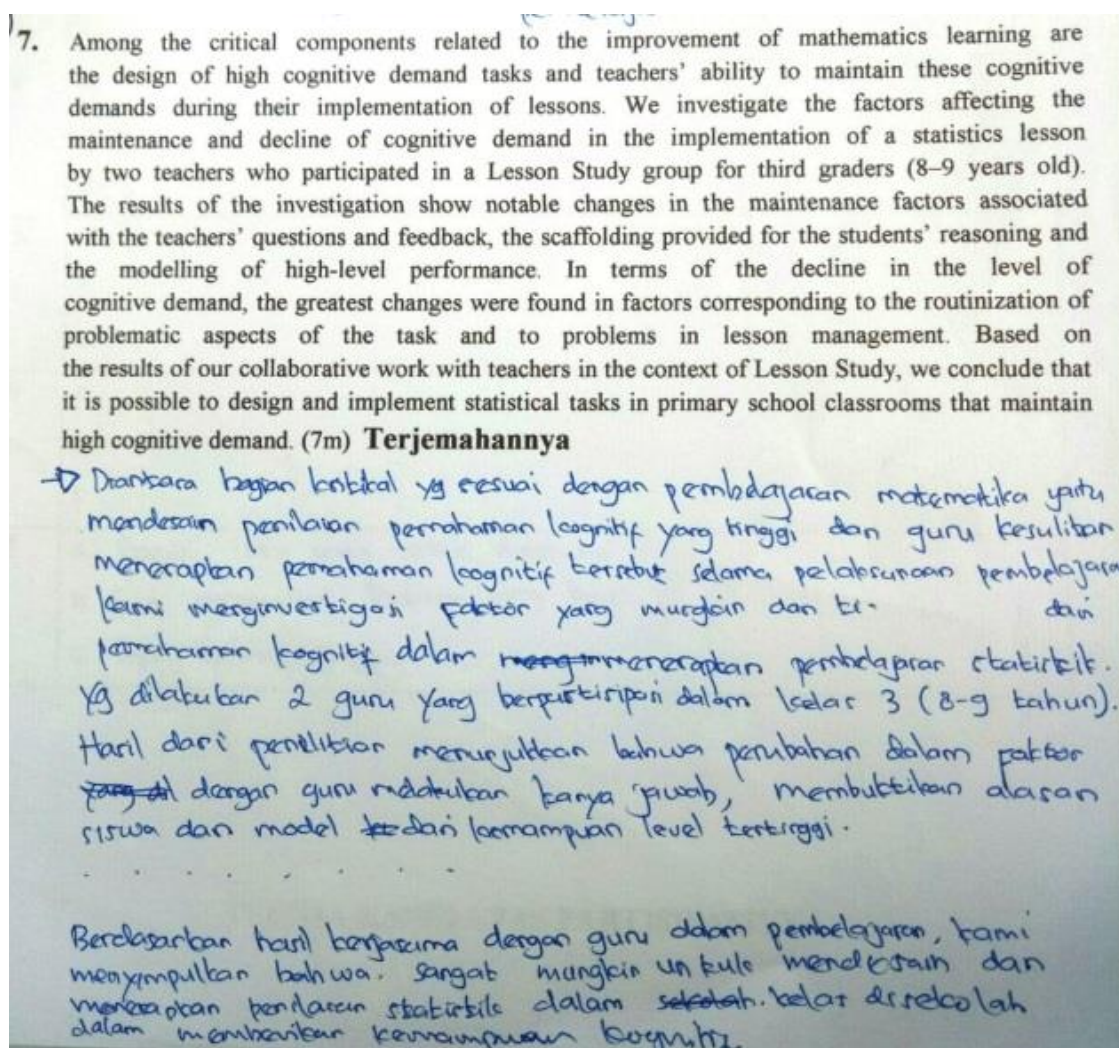 7. Among the critical components related to the improvement of mathematics learning are
the design of high cognitive demand tasks and teachers' ability to maintain these cognitive
demands during their implementation of lessons. We investigate the factors affecting the
maintenance and decline of cognitive demand in the implementation of a statistics lesson
by two teachers who participated in a Lesson Study group for third graders (8–9 years old).
The results of the investigation show notable changes in the maintenance factors associated
with the teachers' questions and feedback, the scaffolding provided for the students' reasoning and
the modelling of high-level performance. In terms of the decline in the level of
cognitive demand, the greatest changes were found in factors corresponding to the routinization of
problematic aspects of the task and to problems in lesson management. Based on
the results of our collaborative work with teachers in the context of Lesson Study, we conclude that
it is possible to design and implement statistical tasks in primary school classrooms that maintain
high cognitive demand. (7m) Terjemahannya
Diantara bagian kritikal yg sesuai dengan pembelajaran matematika yaitu
mendesain penilaian pemahaman kognitif yang tinggi dan guru kesulitan
menerapkan pemahaman kognitif tersebut selama pelaksanaan pembelajara
kami menginvestigasi faktor yang mungkin dan te- dari
pemahaman kognitif dalam menerapkan pembelajaran statistik.
yg dilakukan 2 guru yang berpartisipasi dalam kelas 3 (8-9 tahun).
Hasil dari penelitian menunjukkan bahwa perubahan dalam faktor
dengan guru melakukan tanya jawab, membuktikan alasan
siswa dan model dari kemampuan level tertinggi.
. . . . . . . .
Berdasarkan hasil kerjasama dengan guru dalam pembelajaran, kami
menyimpulkan bahwa. sangat mungkin untuk mendesain dan
menerapkan statistik dalam kelas disekolah
dalam memberikan kemampuan kognitif